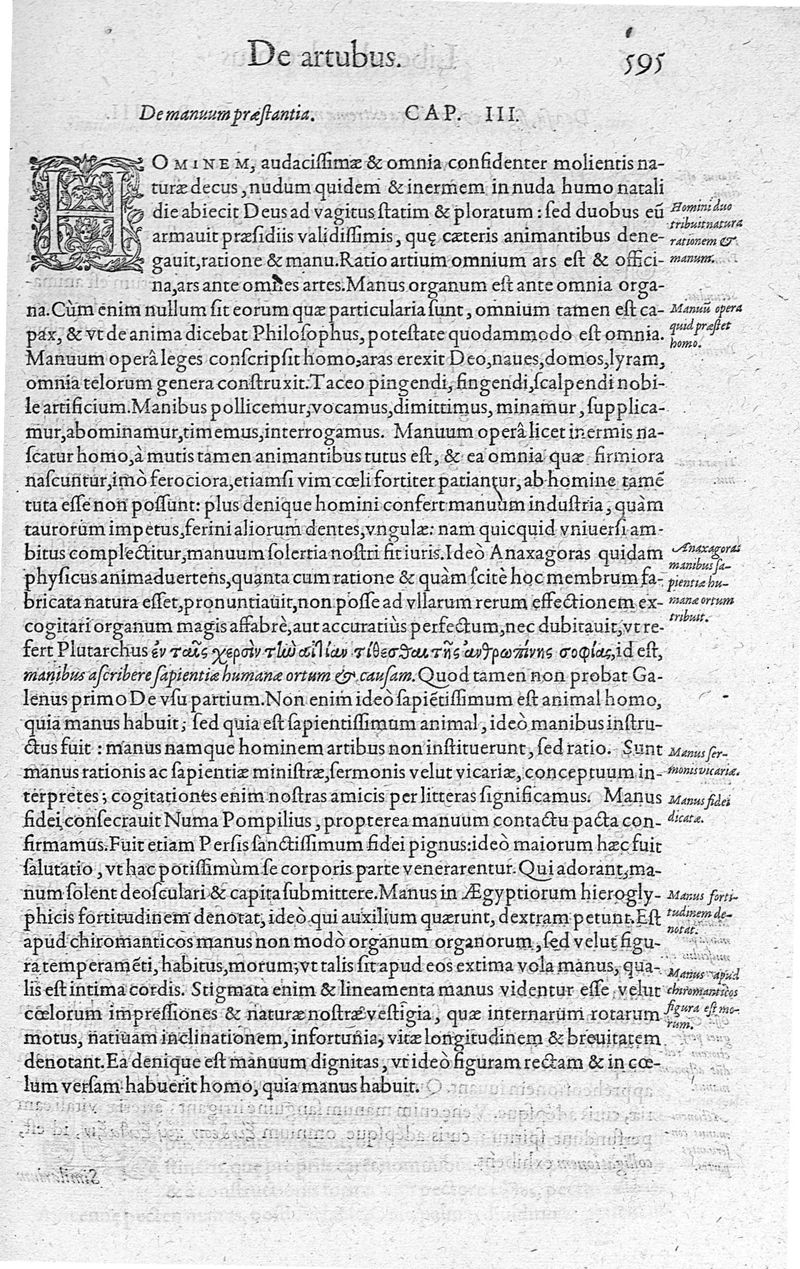 De artubus. 595
De manuum præstantia. CAP. III.
HOMINEM, audacissimæ & omnia confidenter molientis na-
turæ decus, nudum quidem & inermem in nuda humo natali
die abiecit Deus ad vagitus statim & ploratum: sed duobus eũ
armauit præsidiis validissimis, quę cæteris animantibus dene-
gauit, ratione & manu. Ratio artium omnium ars est & offici-
na, ars ante omnes artes. Manus organum est ante omnia orga-
na. Cùm enim nullum sit eorum quæ particularia sunt, omnium tamen est ca-
pax, & vt de anima dicebat Philosophus, potestate quodammodo est omnia.
Manuum operâ leges conscripsit homo, aras erexit Deo, naues, domos, lyram,
omnia telorum genera construxit. Taceo pingendi, fingendi, scalpendi nobi-
le artificium. Manibus pollicemur, vocamus, dimittimus, minamur, supplica-
mur, abominamur, timemus, interrogamus. Manuum operâ licet inermis na-
scatur homo, à mutis tamen animantibus tutus est, & ea omnia quæ firmiora
nascuntur, imò ferociora, etiamsi vim cœli fortiter patiantur, ab homine tamẽ
tuta esse non possunt: plus denique homini confert manuum industria, quàm
taurorum impetus, ferini aliorum dentes, vngulæ: nam quicquid vniuersi am-
bitus complectitur, manuum solertia nostri fit iuris. Ideò Anaxagoras quidam
physicus animaduertens, quanta cum ratione & quàm scitè hoc membrum fa-
bricata natura esset, pronuntiauit, non posse ad vllarum rerum effectionem ex-
cogitari organum magis affabrè, aut accuratius perfectum, nec dubitauit, vt re-
fert Plutarchus ἐν ταῖς χερσὶν τὴν αἰτίαν τίθεσθαι τῆς ἀνθρωπίνης σοφίας, id est,
manibus ascribere sapientiæ humanæ ortum & causam. Quod tamen non probat Ga-
lenus primo De vsu partium. Non enim ideò sapiẽtissimum est animal homo,
quia manus habuit; sed quia est sapientissimum animal, ideò manibus instru-
ctus fuit: manus namque hominem artibus non instituerunt, sed ratio. Sunt
manus rationis ac sapientiæ ministræ, sermonis velut vicariæ, conceptuum in-
terpretes; cogitationes enim nostras amicis per litteras significamus. Manus
fidei consecrauit Numa Pompilius, propterea manuum contactu pacta con-
firmamus. Fuit etiam Persis sanctissimum fidei pignus: ideò maiorum hæc fuit
salutatio, vt hac potissimùm se corporis parte venerarentur. Qui adorant, ma-
num solent deosculari & capita submittere. Manus in Ægyptiorum hierogly-
phicis fortitudinem denotat, ideò qui auxilium quærunt, dextram petunt. Est
apud chiromanticos manus non modò organum organorum, sed velut figu-
ra temperamẽti, habitus, morum; vt talis sit apud eos extima vola manus, qua-
lis est intima cordis. Stigmata enim & lineamenta manus videntur esse velut
cœlorum impressiones & naturæ nostræ vestigia, quæ internarum rotarum
motus, natiuam inclinationem, infortunia, vitæ longitudinem & breuitatem
denotant. Ea denique est manuum dignitas, vt ideò figuram rectam & in cœ-
lum versam habuerit homo, quia manus habuit.
Homini duo
tribuit natura
rationem &
manum.
Manuũ opera
quid præstet
homo.
Anaxagoras
manibus sa-
pientiæ hu-
manæ ortum
tribuit.
Manus ser-
monis vicariæ.
Manus fidei
dicatæ.
Manus forti-
tudinem de-
notat.
Manus apud
chiromanticos
figura est mo-
rum.